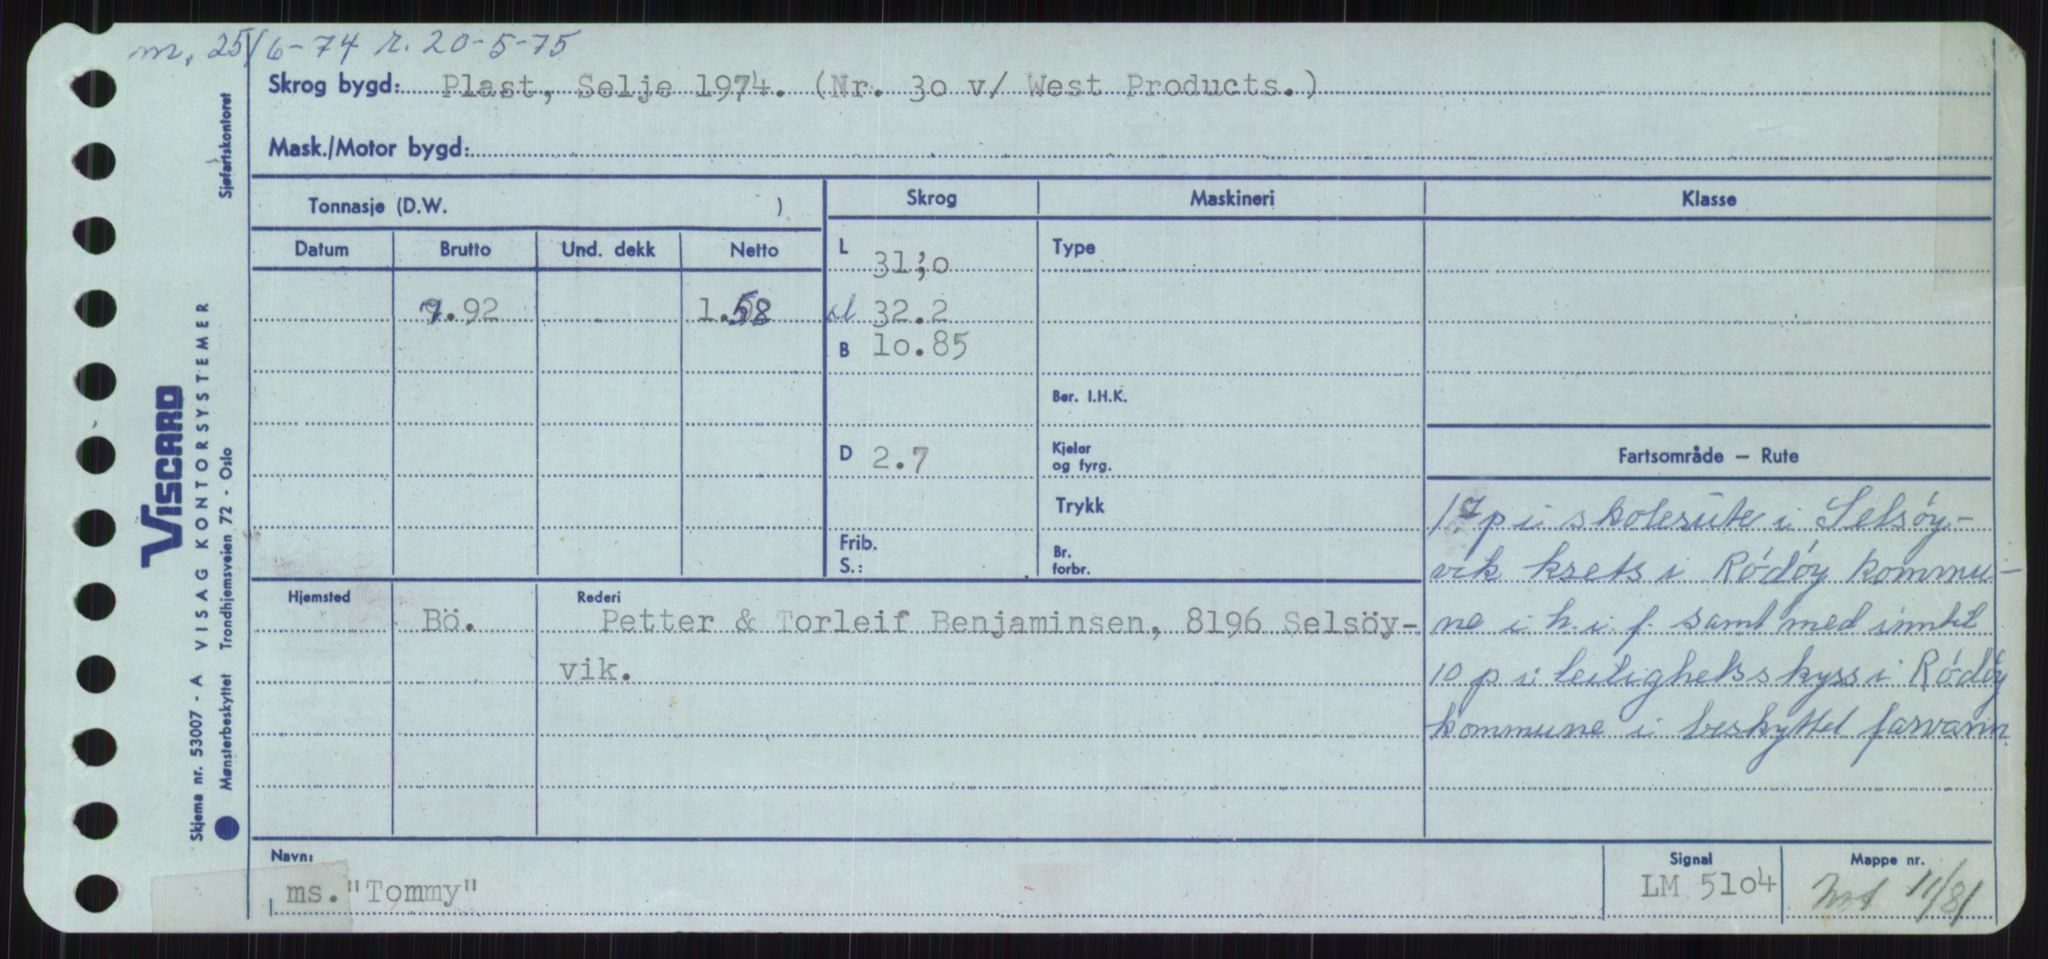 m. 25/6-74 r. 20-5-75
Skrog bygd: Plast, Selje 1974. (Nr. 3o v/ West Products.)
Mask./Motor bygd:
Tonnasje (D.W. )
Skrog
Maskineri
Klasse
Datum
Brutto
Und. dekk
Netto
L 31;o
Type
.92
1.58
sl 32.2
B 1o.85
Ber. I.H.K.
D 2.7
Kjeler
og fyrg.
Trykk
Frib.
S.:
Br.
forbr.
Fartsområde – Rute
17 p i skolerute i Selsöy-
vik krets i Rödöy kommu-
ne i h.i.f. samt med inntil
10 p i leilighetsskyss i Rödöy
kommune i beskyttet farvann
Hjemsted
Bö.
Rederi
Petter & Torleif Benjaminsen, 8196 Selsöy-
vik.
Navn:
ms. "Tommy"
Signal
LM 51o4
Mappe nr.
11/81
Sjøfartskontoret
VISCARD
VISAG KONTORSYSTEMER
Trondhjemsveien 72 - Oslo
Skjema nr. 53007 - A
Mønsterbeskyttet